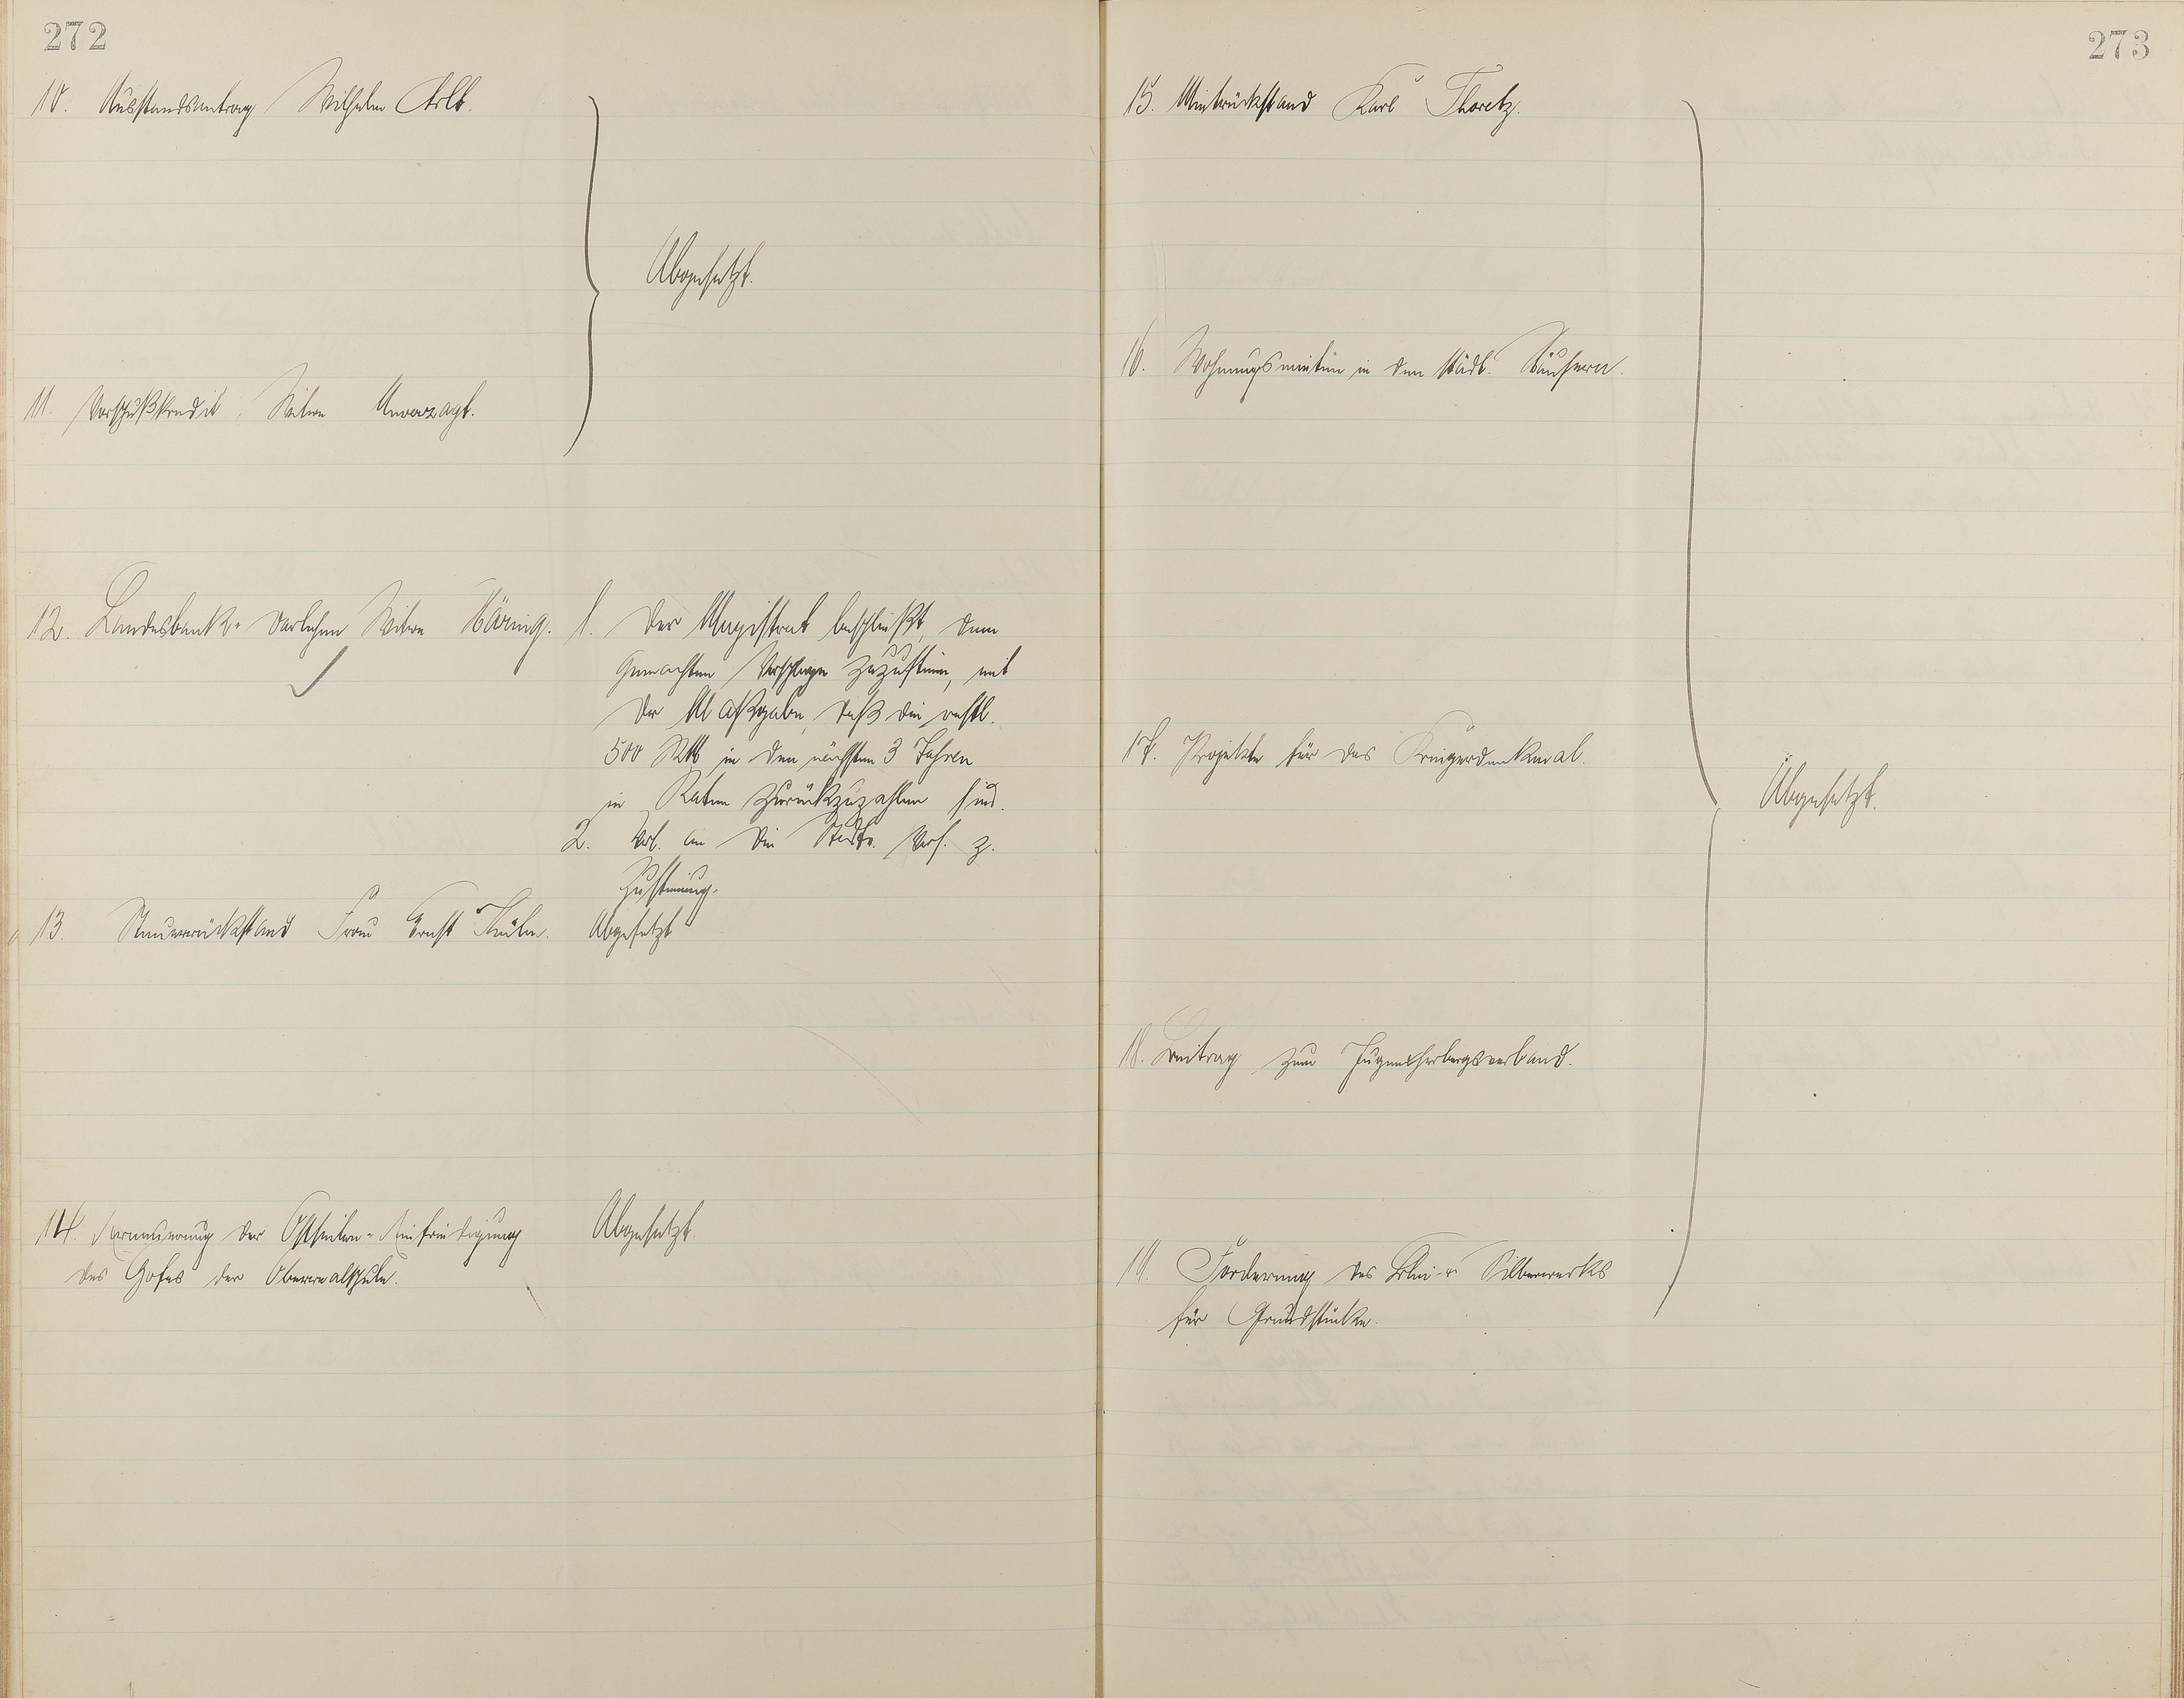 272
10. Ausstandsantrag Wilhelm Arlt.
Abgesetzt.
11. Vorschußkredit Witwe Unverzagt.
12. Landesbank-Darlehen Witwe Häring.
1. Der Magistrat beschließt, dem
gemachten Vorschlage zuzustimmen, mit
der Maßgabe, daß die restl.
500 RM in den nächsten 3 Jahren
in Raten zurückzuzahlen sind.
2. Vorl. an die Stadtv. Vers. z.
Zustimmung.
13. Steuerrückstand Frau Ernst
Abgesetzt
14. Erneuerung der Ostseiten-Einfriedigung
des Hofes der Oberrealschule.
Abgesetzt.
273
15. Mietrückstand Karl Thoretz.
16. Wohnungsmieten in den städt. Häusern.
17. Projekte für das Kriegerdenkmal.
Abgesetzt.
18. Beitrag zum Jugendherbergsverband.
19. Forderung des Blei- u. Silberwerks
für Grundstücke.